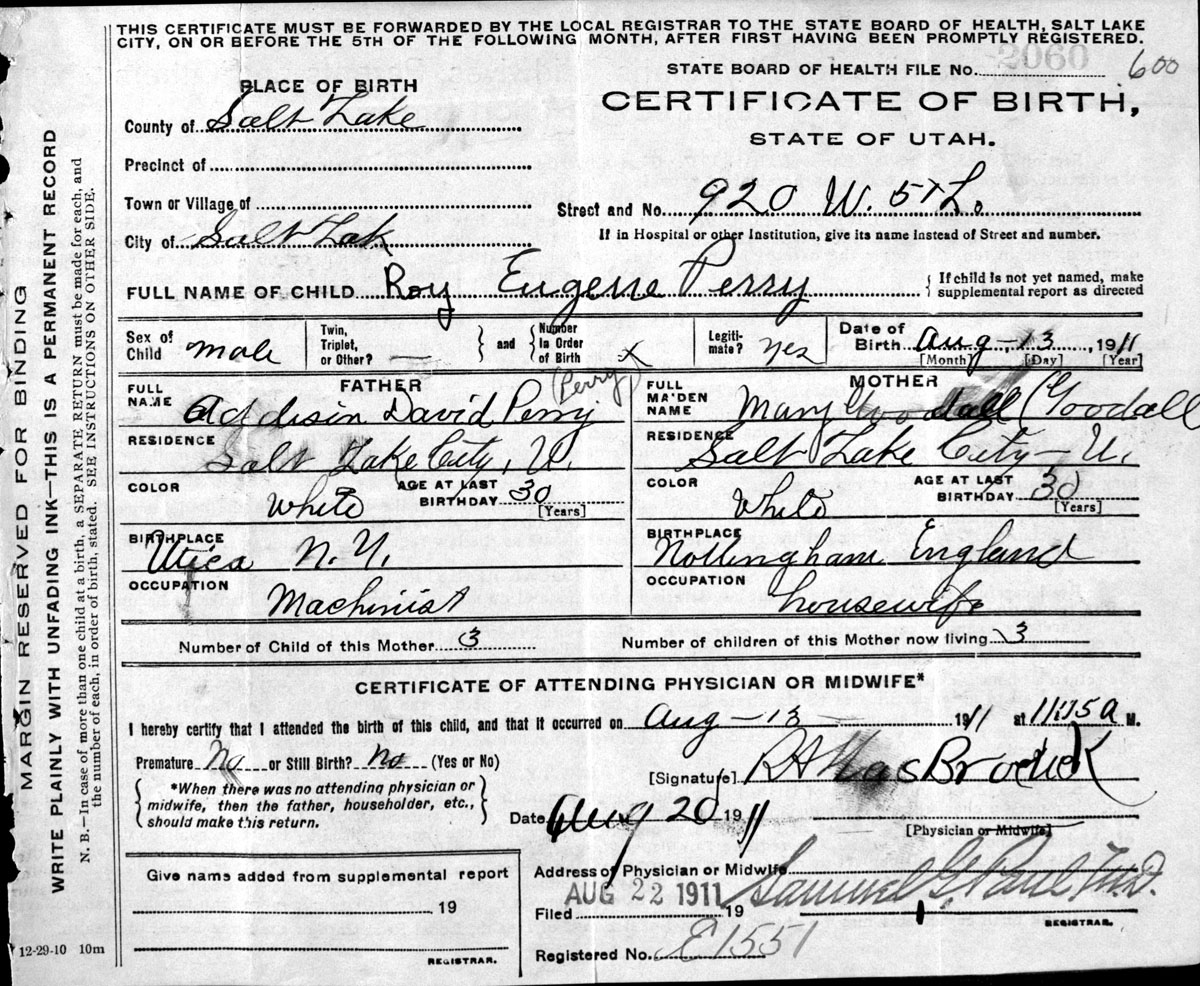 THIS CERTIFICATE MUST BE FORWARDED BY THE LOCAL REGISTRAR TO THE STATE BOARD OF HEALTH, SALT LAKE
CITY, ON OR BEFORE THE 5TH OF THE FOLLOWING MONTH, AFTER FIRST HAVING BEEN PROMPTLY REGISTERED.
2060
STATE BOARD OF HEALTH FILE No. 600
PLACE OF BIRTH
CERTIFICATE OF BIRTH,
STATE OF UTAH.
County of Salt Lake
Precinct of
Town or Village of
Street and No. 920 W.
City of Salt Lak
If in Hospital or other Institution, give its name instead of Street and number.
FULL NAME OF CHILD Roy Eugene Perry
{ If child is not yet named, make
supplemental report as directed
Sex of Child male
Twin, Triplet, or Other? —
} and { Number in Order of Birth
Legiti-mate? yes
Date of Birth Aug - 13, 1911
[Month] [Day] [Year]
FATHER
MOTHER
FULL NAME Addison David Perry (Perry)
FULL MAIDEN NAME Mary Goodall (Goodall
RESIDENCE Salt Lake City, U.
RESIDENCE Salt Lake City - U.
COLOR White
AGE AT LAST BIRTHDAY 30 [Years]
COLOR White
AGE AT LAST BIRTHDAY 30 [Years]
BIRTHPLACE Utica N.Y.
BIRTHPLACE Nottingham England
OCCUPATION Machinist
OCCUPATION housewife
Number of Child of this Mother 3
Number of children of this Mother now living 3
CERTIFICATE OF ATTENDING PHYSICIAN OR MIDWIFE*
I hereby certify that I attended the birth of this child, and that it occurred on Aug - 13 - 1911 at 11:15 a M.
Premature No or Still Birth? No (Yes or No)
[Signature]
{ *When there was no attending physician or
midwife, then the father, householder, etc.,
should make this return. }
Date Aug 20 1911
[Physician or Midwife]
Address of Physician or Midwife
Give name added from supplemental report
19
REGISTRAR.
AUG 22 1911
Filed 19 Samuel G. Paul M.D.
REGISTRAR.
Registered No. E1551
12-29-10 10m
MARGIN RESERVED FOR BINDING
WRITE PLAINLY WITH UNFADING INK—THIS IS A PERMANENT RECORD
N. B.—In case of more than one child at a birth, a SEPARATE RETURN must be made for each, and
the number of each, in order of birth, stated. SEE INSTRUCTIONS ON OTHER SIDE.